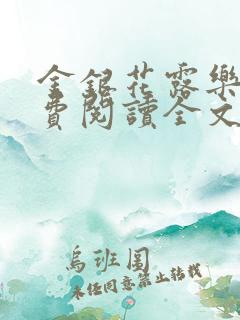 金銀花露樂
費閱讀全文
烏班圖
未经同意禁止转载